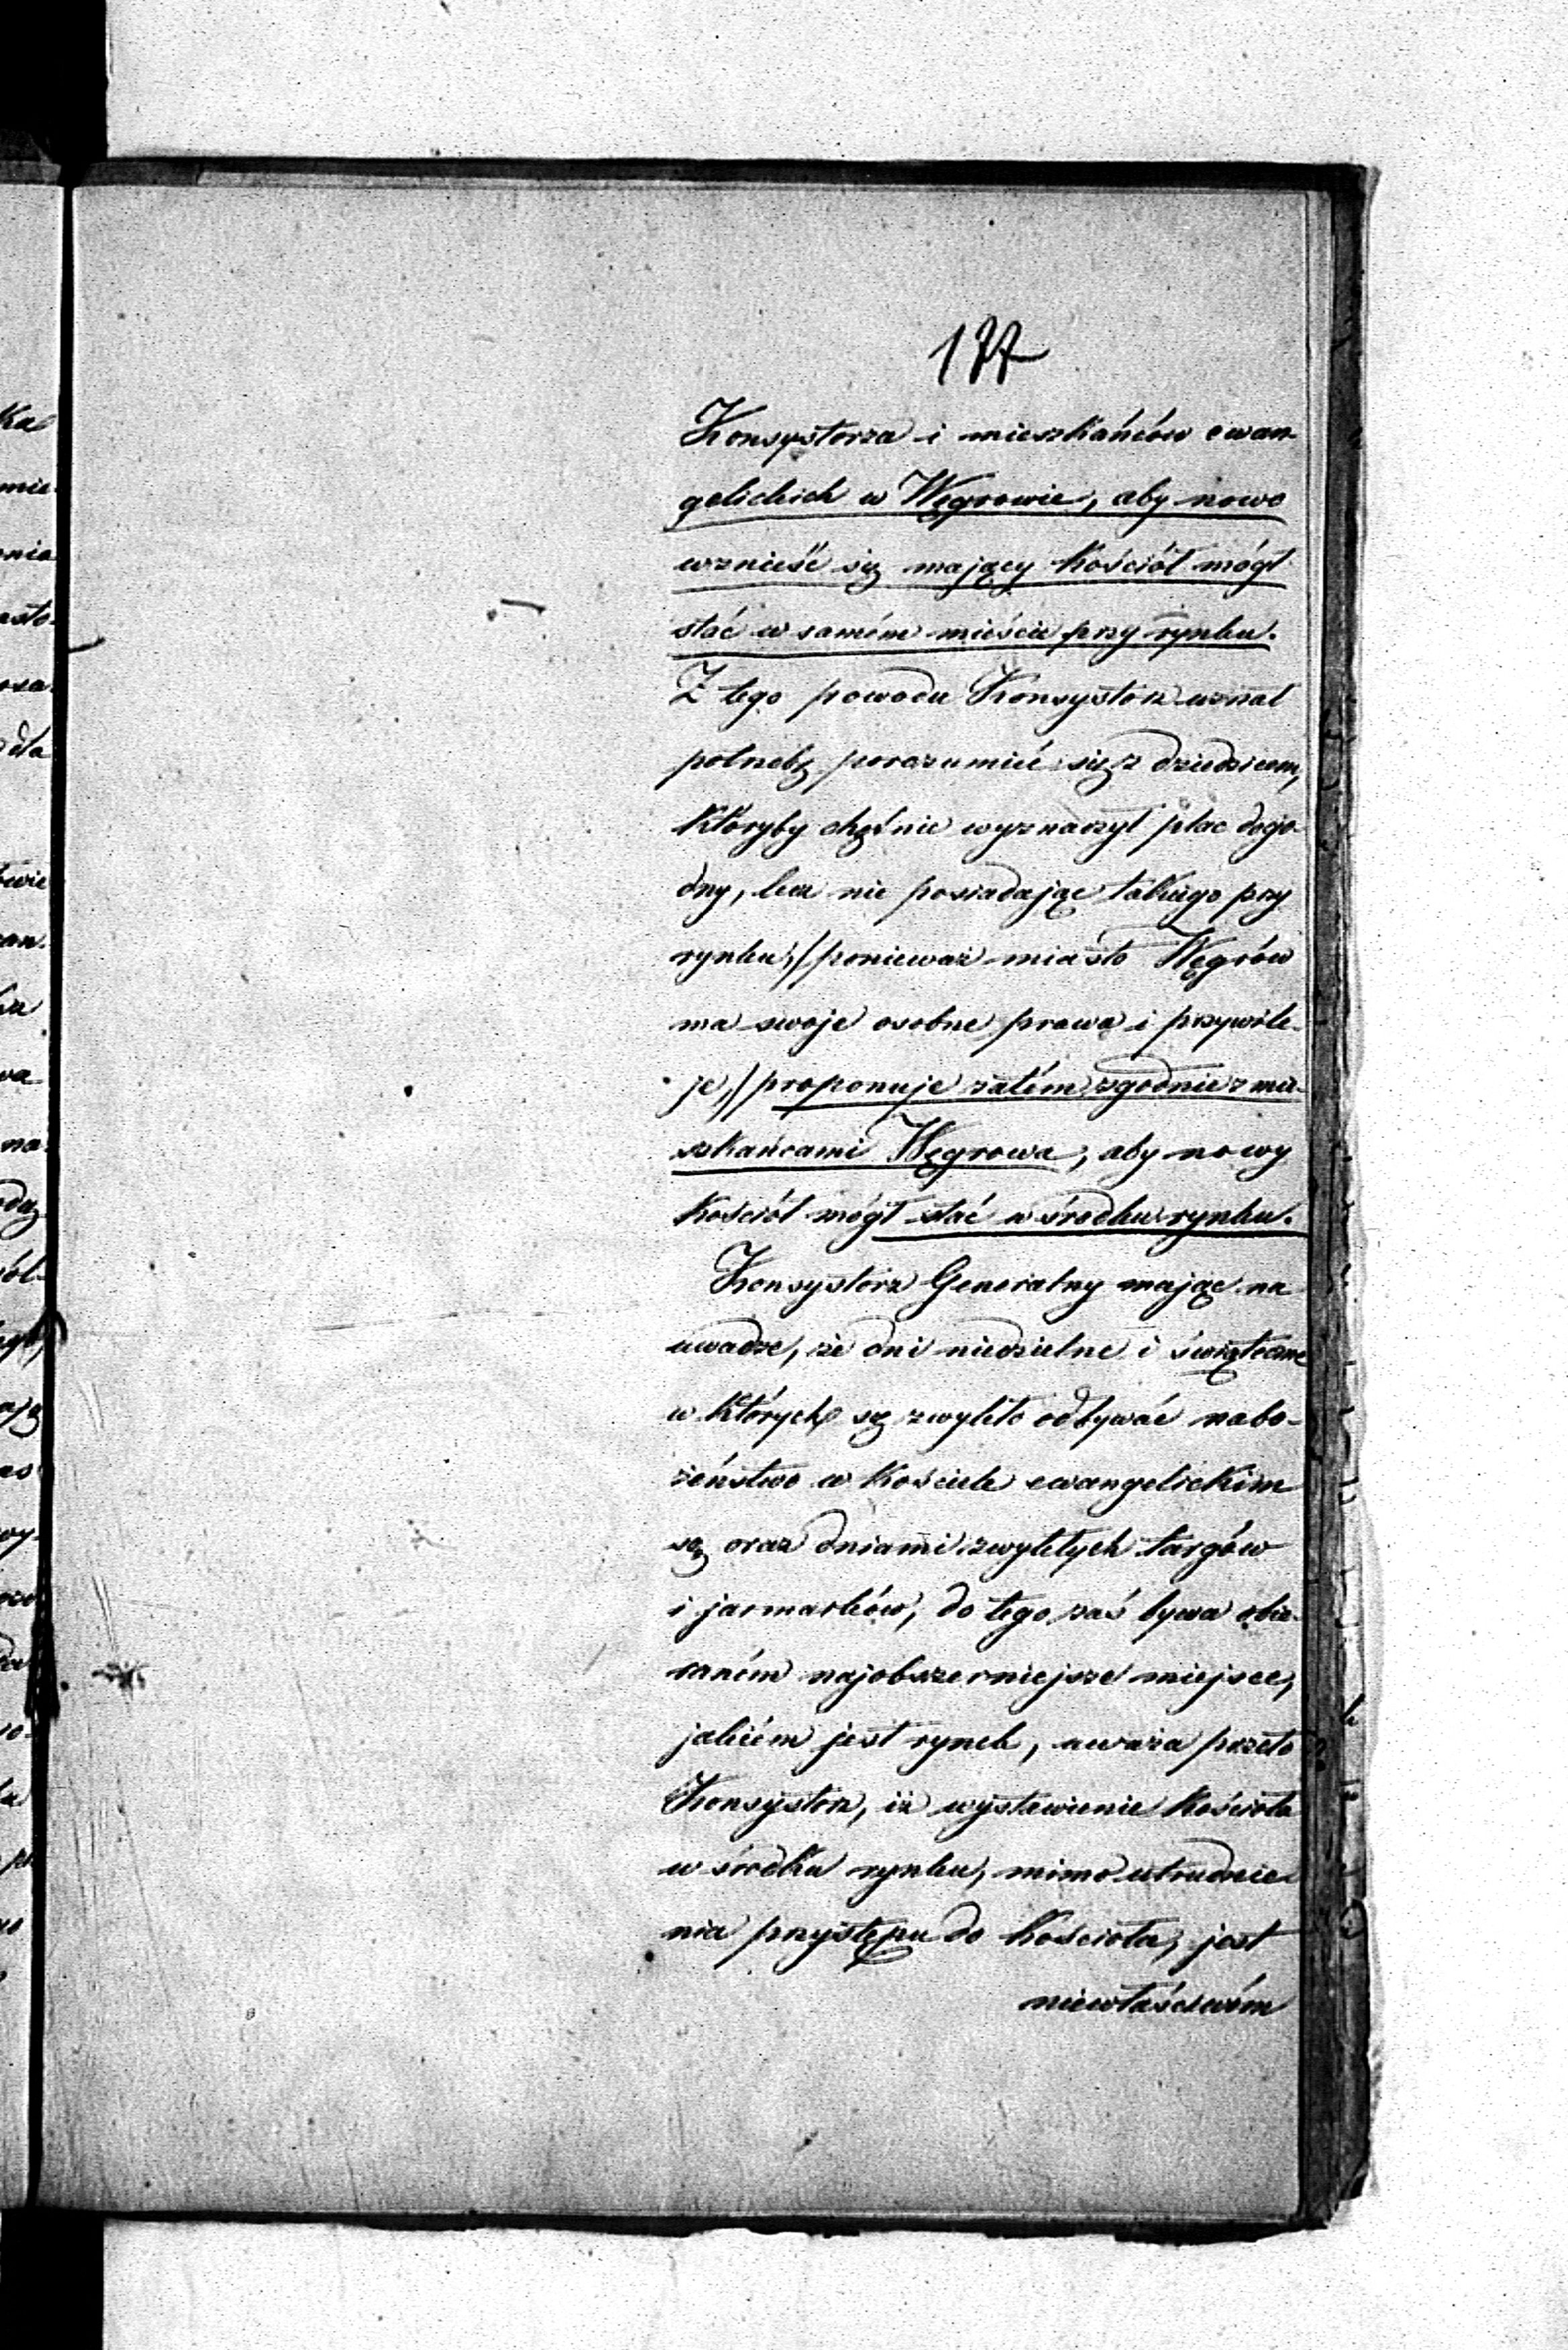 177
Konsystorza i mieszkańców ewan-
gelickich w Węgrowie, aby nowo
wznieść się mający Kościół mógł
stać w samém mieście przy rynku.
Z tego powodu Konsystorz uznał
potrzebę porozumieć się z dziedzicem,
któryby chętnie wyznaczył plac dogo-
dny, lecz nie posiadając takiego przy
rynku, // ponieważ miasto Węgrów
ma swoje osobne prawa i przywile-
je, // proponuje zatém zgodnie z mie-
szkańcami Węgrowa, aby nowy
Kościół mógł stać w środku rynku.
Konsystorz Generalny mając na
uwadze, że dni niedzielne i świąteczne
w których są zwykło odbywać nabo-
żeństwo w Kościele ewangelickim
są oraz dniami zwykłych targów
i jarmarków, do tego zaś bywa obie-
raném najobszerniejsze miejsce,
jakiém jest rynek, uważa przeto
Konsystorz, iż wystawienie Kościoła
w środku rynku, mimo utrudnie-
nia przystępu do Kościoła, jest
niewłaściwém